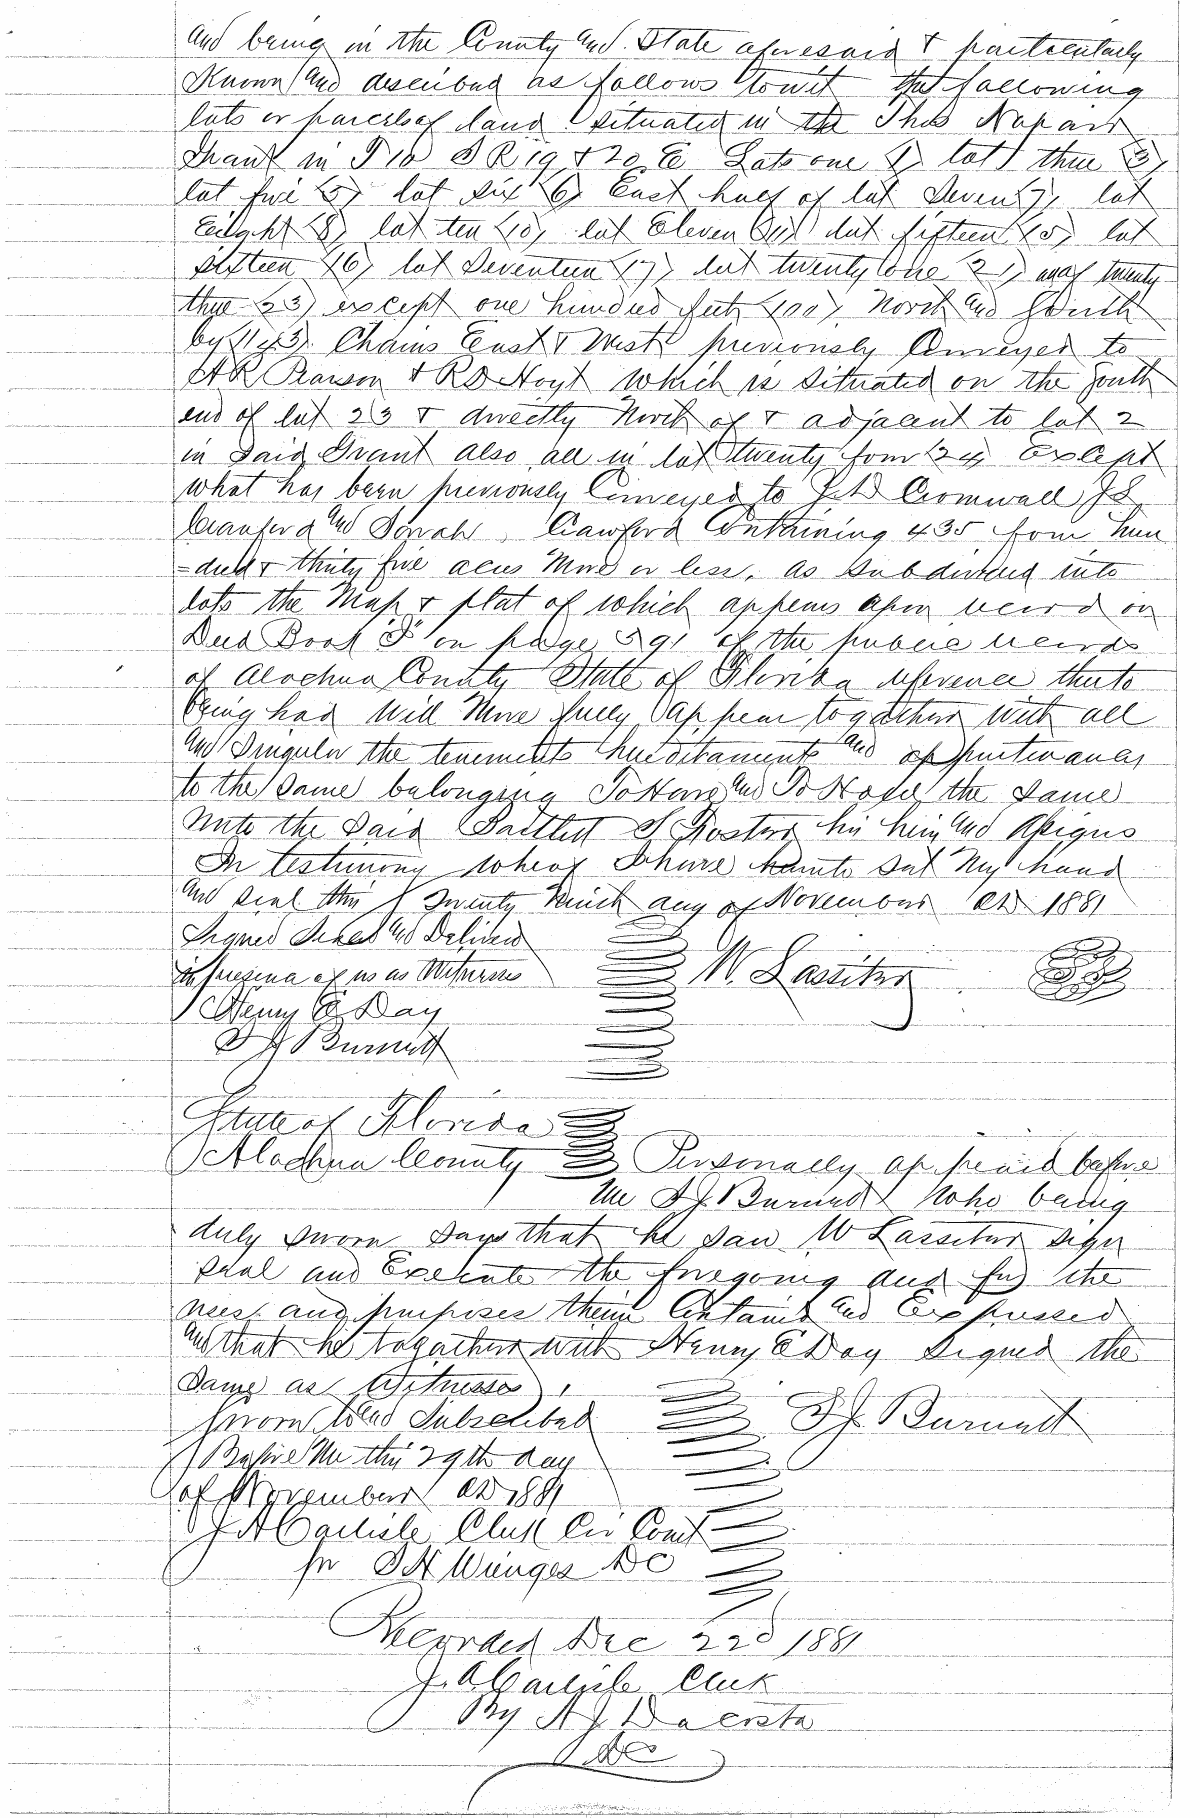 and being in the County and State aforesaid & particularly
Known and described as follows towit the following
lots or parcels of land situated in the Thos Napier
Grant in T 10 S R 19 & 20 E Lots one (1) lot three (3)
lot five (5) lot six (6) East half of lot Seven (7), lot
Eight (8) lot ten (10) lot Eleven (11) lot fifteen (15) lot
sixteen (16) lot Seventeen (17) lot twenty one (21) twenty
three (23) except one hundred feet (100) North and South
by Chains East & West previously Conveyed to
Pearson & Hoyt which is situated on the South
end of lot 23 & directly North of & adjacent to lot 2
in Said Grant also all in lot twenty four (24) Except
what has been previously Conveyed to Cromwell J S
Crawford and Sarah Crawford Containing 435 four hun
=dred & thirty five acres More or less, as Subdivided into
lots the Map & plat of which appears upon record on
Deed Book on page 591 of the public records
of Alachua County State of Florida reference thereto
being had will More fully appear together with all
and Singular the tenements hereditaments and appurtenances
to the Same belonging To Have and To Hold the Same
Unto the Said his heirs and Assigns
In testimony whereof I have hereunto Set My hand
and seal this Twenty Ninth day of November AD 1881
Signed Sealed and Delivered
in presence of us as Witnesses W. Lassiter
Henry E Day
S J Burnett
State of Florida
Alachua County Personally appeared before
Me S J Burnett Who being
duly sworn Says that he saw W Lassiter sign
seal and Execute the foregoing deed for the
uses and purposes therein Contained and Expressed
and that he together with Henry E Day signed the
Same as Witnesses.
Sworn to and Subscribed S J Burnett
Before Me this 29th day
of November AD 1881
J A Carlisle Clerk Cir Court
pr DC
Recorded Dec 22d 1881
J. A Carlisle Clerk
By A J Dacosta
DC